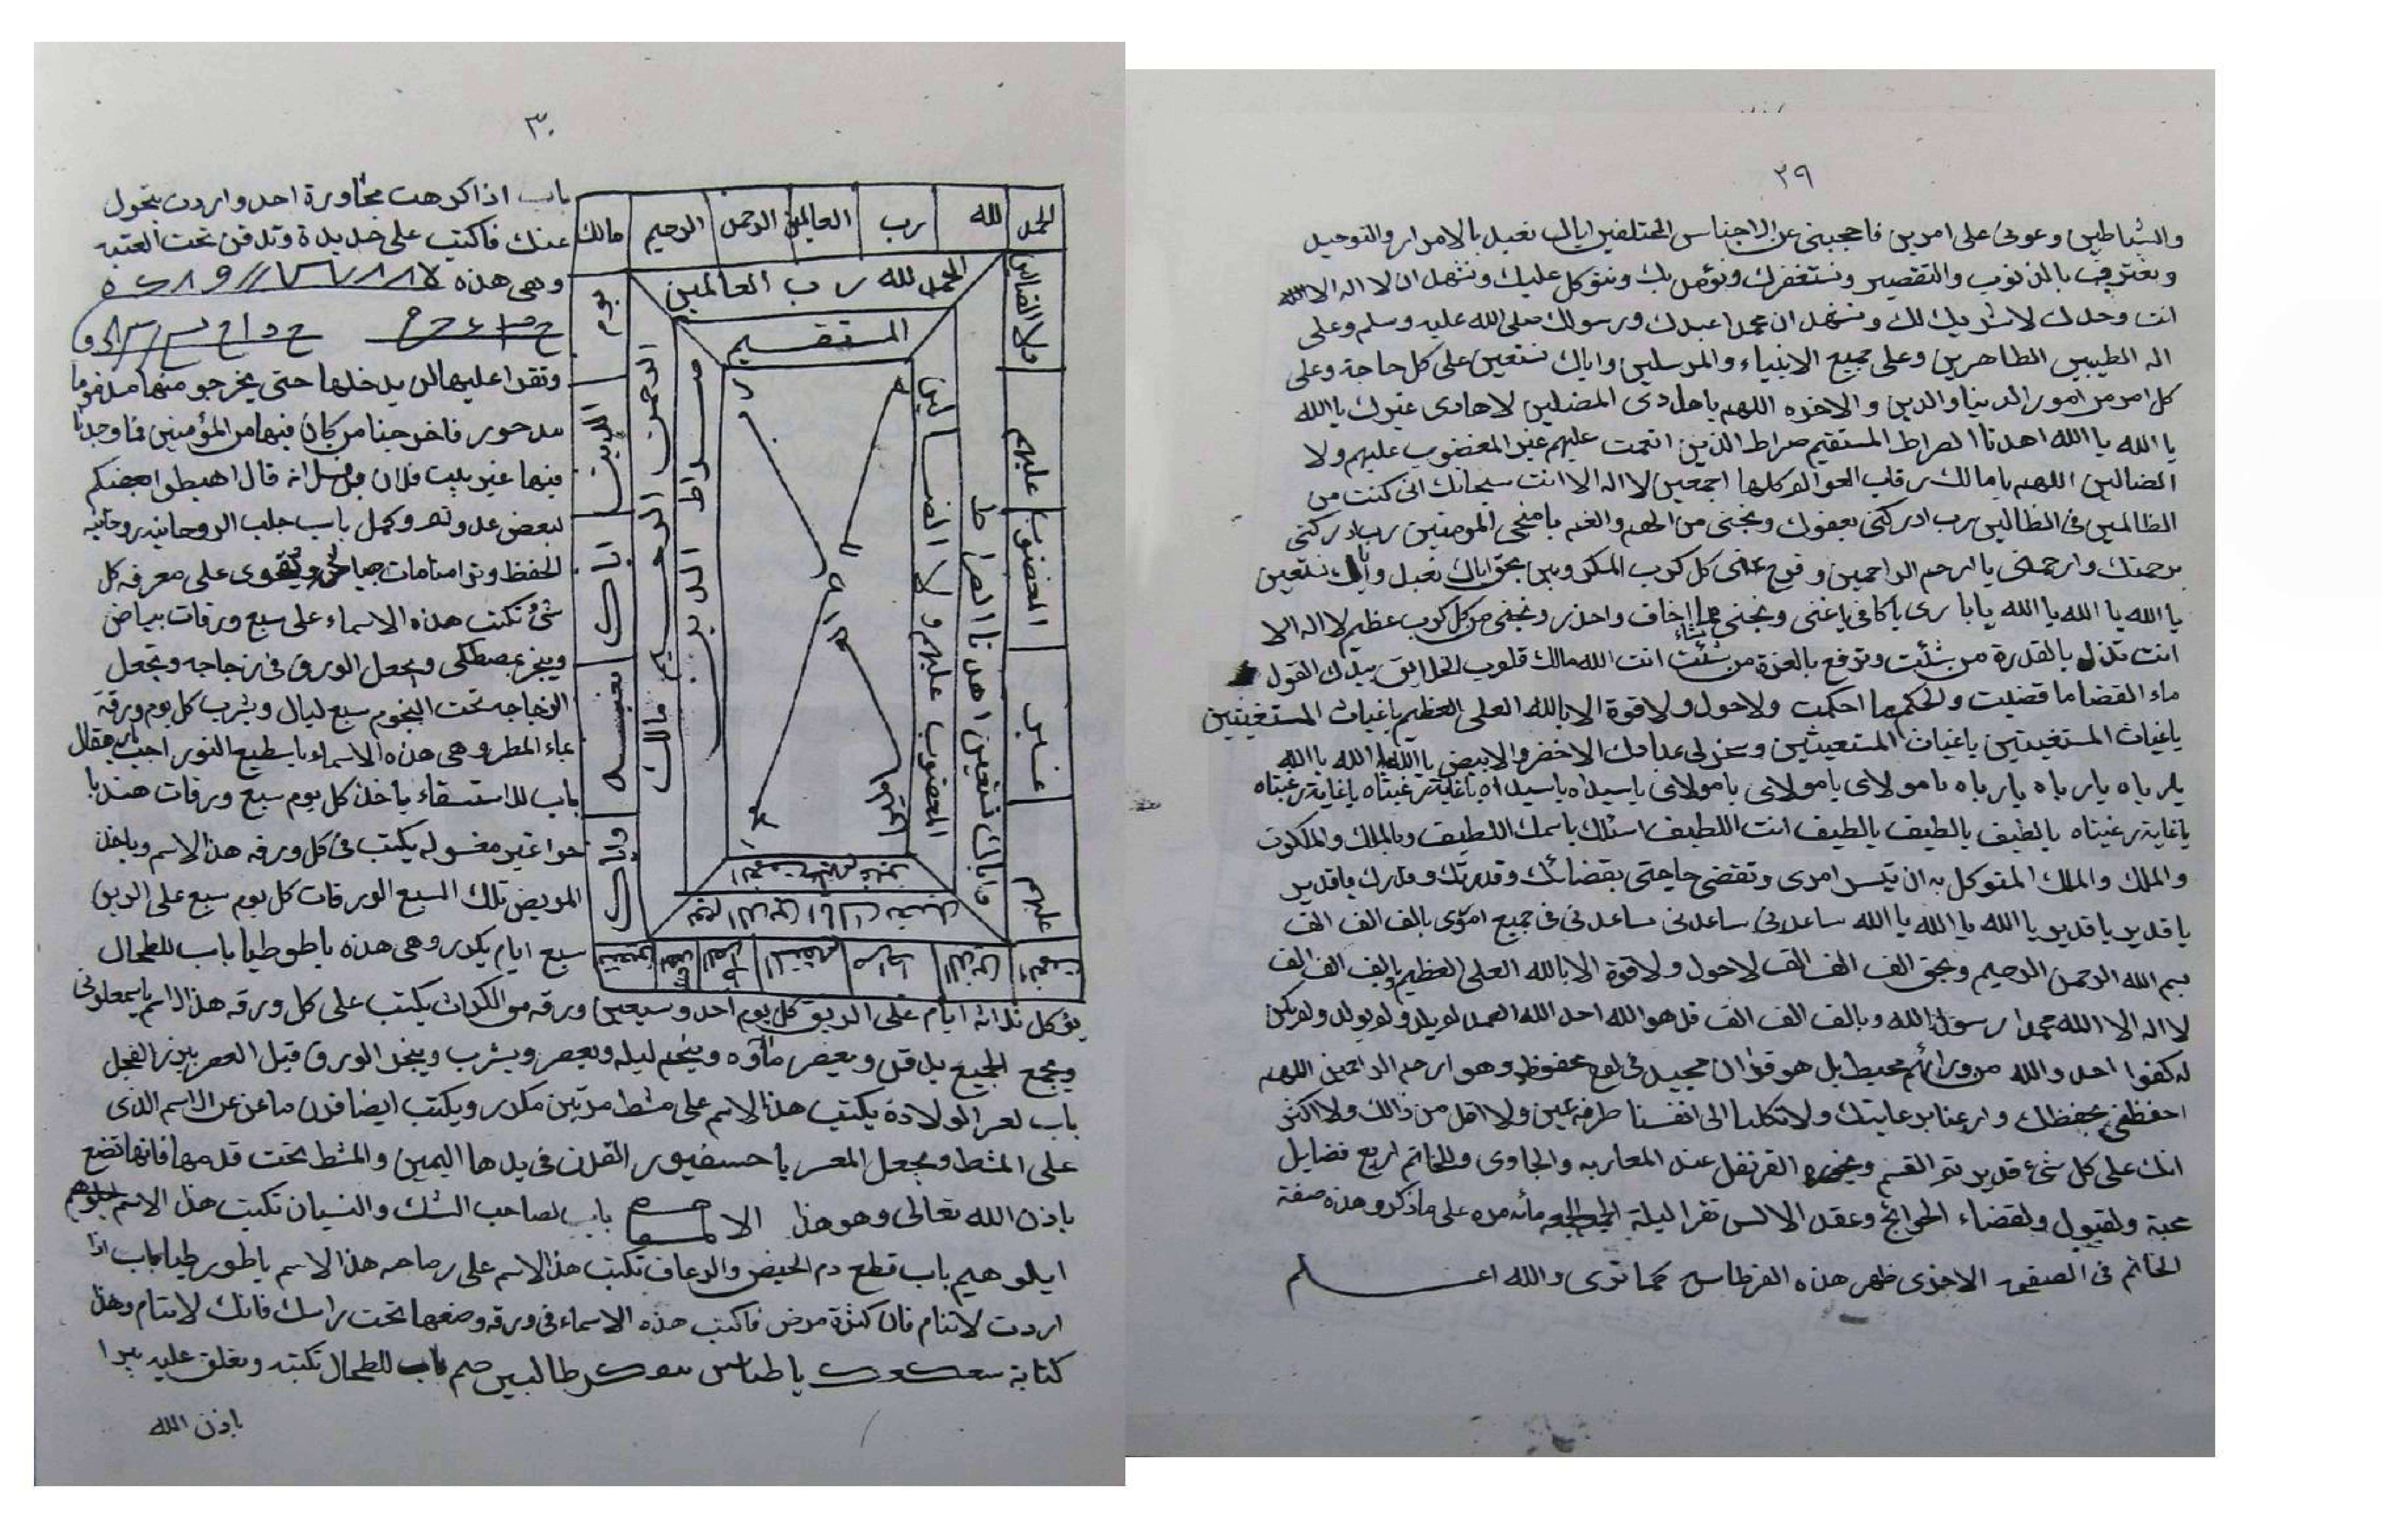 ٢٩
والشياطين وعونى على امرين فاحجبنى عن الاجناس المختلفين اياك نعبد بالامرار والتوحيد
ونعترف بالذنوب والتقصير ونستغفرك ونؤمن بك ونتوكل عليك ونشهد ان لا اله الا الله
انت وحدك لا شريك لك ونشهد ان محمدا عبدك ورسولك صلى الله عليه وسلم وعلى
اله الطيبين الطاهرين وعلى جميع الانبياء والمرسلين واياك نستعين على كل حاجة وعلى
كل امر من امور الدنيا والدين والاخره اللهم يا هادى المضلين لا هادى غيرك يا الله
يا الله يا الله اهدنا الصراط المستقيم صراط الذين انعمت عليهم غير المغضوب عليهم ولا
الضالين اللهم يا مالك رقاب العوالم كلها اجمعين لا اله الا انت سبحانك انى كنت من
الظالمين فى الظالين رب ادركنى بعفوك ونجنى من الهم والغم يا منجى المومنين رب ادركنى
برحمتك وارحمنى يا ارحم الراحمين وفرج عنى كل كرب المكروبين بحق اياك نعبد واياك نستعين
يا الله يا الله يا الله يا بارى يا كافى يا غنى ونجنى مما اخاف واحذر ونجنى من كل كرب عظيم لا اله الا
انت تذل بالقدرة من شئت وترفع بالعزة من شئت انت الله مالك قلوب الخلايق بيدك القول
ماء القضا ما قضيت والحكم ما احكمت ولا حول ولا قوة الا بالله العلى العظيم يا غياث المستغيثين
يا غياث المستغيثين يا غياث المستغيثين وسخر لى عبادك الاخضر والابيض يا الله يا الله يا الله
يا رباه يا رباه يا رباه يا مولاى يا مولاى يا مولاى يا سيداه يا سيداه يا غاية رغبتاه يا غاية رغبتاه
يا غاية رغبتاه يالطيف يالطيف يالطيف انت اللطيف اسئلك باسمك اللطيف وبالملك والملكوت
والملك والملك المتوكل به ان تيسر امرى وتقضى حاجتى بقضائك وقدرتك وقدرك يا قدير
يا قدير يا قدير يا الله يا الله يا الله ساعدنى ساعدنى ساعدنى فى جميع امورى بالف الف الف
بسم الله الرحمن الرحيم وبحق الف الف الف لاحول ولا قوة الا بالله العلى العظيم وبالف الف الف
لا اله الا الله محمدا رسول الله وبالف الف الف قل هو الله احد الله الصمد لم يلد ولم يولد ولم يكن
له كفوا احد والله من ورائهم محيط بل هو قرآن مجيد فى لوح محفوظ وهو ارحم الراحمين اللهم
احفظنى بحفظك وارعنا برعايتك ولا تكلنا الى انفسنا طرفة عين ولا اقل من ذالك ولا اكثر
انك على كل شئ قدير تم القسم وبخوره القرنفل عند المغاربه والجاوى وللخاتم اربع فضايل
محبة ولقبول ولقضاء الحوائج وعقد الالسن تقرا ليلة الجمعه مائة مره على ما ذكر وهذه صفة
الخاتم فى الصفحه الاخرى ظهر هذه القرطاس كما ترى والله اعلم
٣٠
الحمد لله رب العالمين الرحمن الرحيم مالك
يوم الدين اياك نعبد واياك
نستعين اهدنا الصراط المستقيم صراط الذين انعمت
عليهم غير المغضوب عليهم ولا الضالين
الحمد لله رب العالمين
الرحمن الرحيم مالك
يوم الدين اياك نعبد
واياك نستعين اهدنا الصراط
المستقيم
صراط الذين
انعمت عليهم غير
المغضوب عليهم ولا الضالين
باب اذا كرهت مجاورة احد واردت يتحول
عنك فاكتب على حديدة وتدفن تحت العتبه
وهى هذه
وتقرا عليها لن يدخلها حتى يخرجو منها مذموما
مدحور فاخرجنا من كان فيها من المؤمنين فما وجدنا
فيها غير بيت فلان قال اهبطوا بعضكم
لبعض عدو تم وكمل باب جلب الروحانيه روحانيه
الحفظ وترا منامات ويقوى على معرفه كل
شئ تكتب هذه الاسماء على سبع ورقات بياض
ويبخر بمصطكى ويجعل الورق فى زجاجه وتجعل
الزجاجه تحت النجوم سبع ليال ويشرب كل يوم ورقة
بماء المطر وهى هذه الاسماء يا سطيع النور اجب
باب للاستسقاء ياخذ كل يوم سبع ورقات هندبا
غير مغسوله يكتب فى كل ورقه هذا الاسم وياخذ
المريض تلك السبع الورقات كل يوم سبع على الريق
سبع ايام يكرر وهى هذه يا طوطيا باب للطحال
يؤكل ثلاثه ايام على الريق كل يوم احد وسبعين ورقه من الكرات يكتب على كل ورقه هذا الاسم
ويجمع الجميع يدق ويعصر ماؤه وينجم ليله ويعصر ويشرب ويبخر الورق قبل العصر ببزر الفجل
باب لعسر الولادة يكتب هذا الاسم على مشط مرتين مكرر ويكتب ايضا قرن ماعز عن الاسم الذى
على المشط ويجعل المعسر القرن فى يدها اليمين والمشط تحت قدمها فانها تضع
باذن الله تعالى وهو هذا باب لصاحب الشك والنسيان تكتب هذا الاسم
ايلوهيم باب قطع دم الحيض والرعاف تكتب هذا الاسم على هذا الاسم يا طور طيا باب اذا
اردت لاتنام فان كثرة مرض فاكتب هذه الاسماء فى ورقه وضعها تحت راسك فانك لاتنام وهذا
كتابة باب للطحال تكتبه وتعلق عليه يبرا
باذن الله